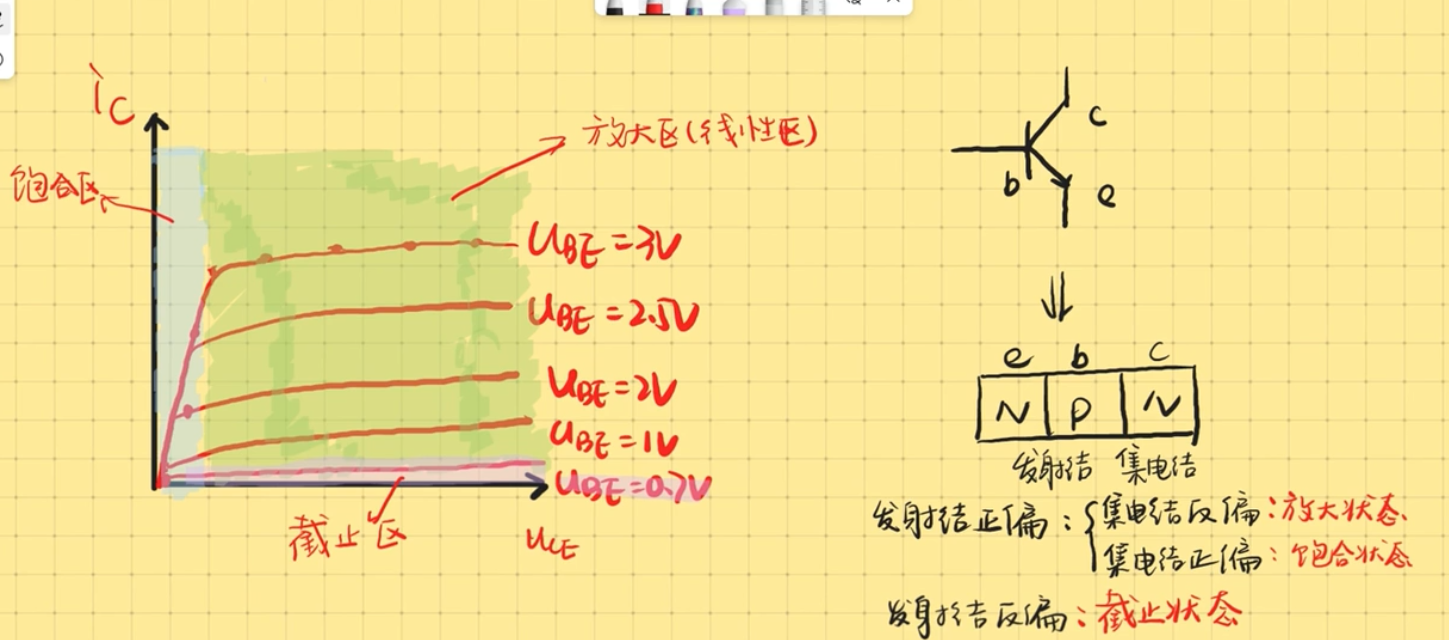 iC
放大区(线性区)
饱合区
UBE=3V
UBE=2.5V
UBE=2V
UBE=1V
UBE=0.7V
截止区
UCE
c
b
e
e b c
N P N
发射结 集电结
发射结正偏:{集电结反偏:放大状态
集电结正偏:饱合状态
发射结反偏:截止状态